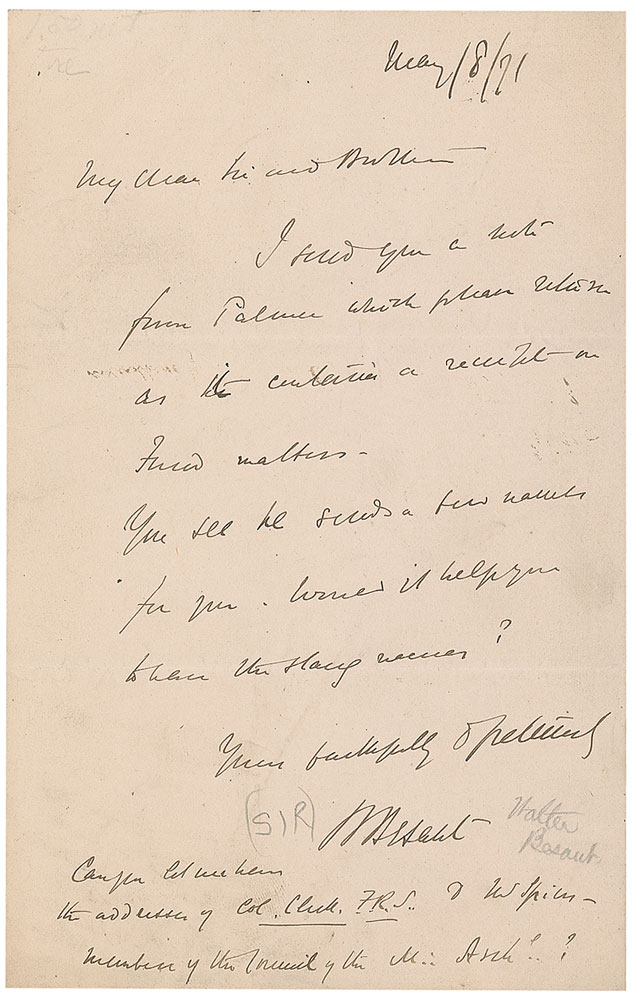 May/8/71
My dear Sir and Brother
I send you a note
from Palmer which please return
as it contains a receipt on
Fund matters -
You see he sends a few names
for you. Would it help you
to have the slang names?
Yours faithfully & fraternally
(SIR) WBesant Walter
Besant
Can you let me have
the addresses of Col. Clerk. F.R.S. & Mr Spiers -
members of the Council of the M.. Assn..?